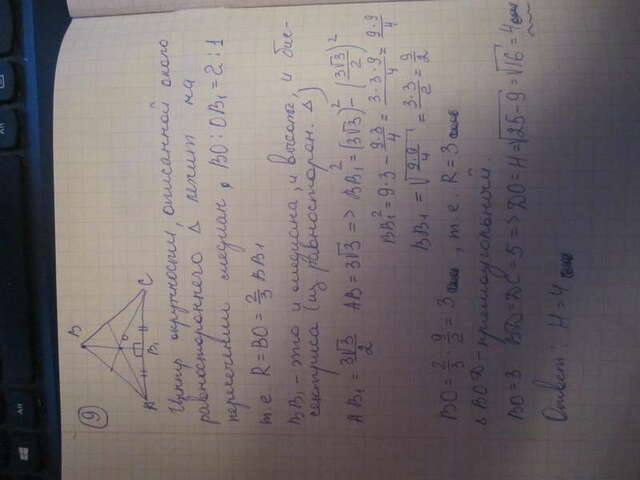 9
B
O
A B₁ C
Центр окружности, описанной около
равностороннего Δ лежит на
пересечении медиан, BO : OB₁ = 2 : 1
т.е. R = BO = 2/3 BB₁
BB₁ - это и медиана, и высота, и бис-
сектриса (из равносторон. Δ)
AB₁ = 3√3/2 AB = 3√3 => BB₁² = (3√3)² - (3√3/2)²
BB₁² = 9·3 - 9·3/4 = 3·3·9/4 = 9·9/4
BB₁ = √(9·9/4) = 3·3/2 = 9/2
BO = 2/3 · 9/2 = 3, т.е. R = 3
Δ BOD - прямоугольный.
BO = 3 BD = DC = 5 => DO = H = √(25-9) = √16 = 4
Ответ: H = 4